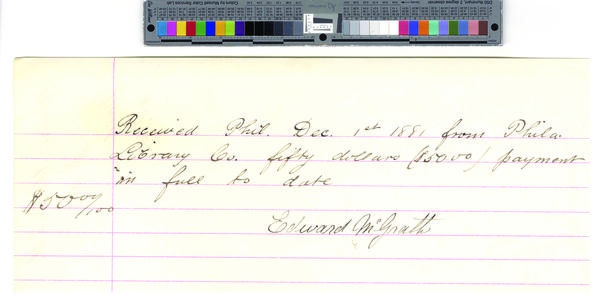 Received Phil. Dec. 1st 1881 from Phila.
Library Co. fifty dollars ($50.00) payment
in full to date
$50 00/100
Edward McGrath